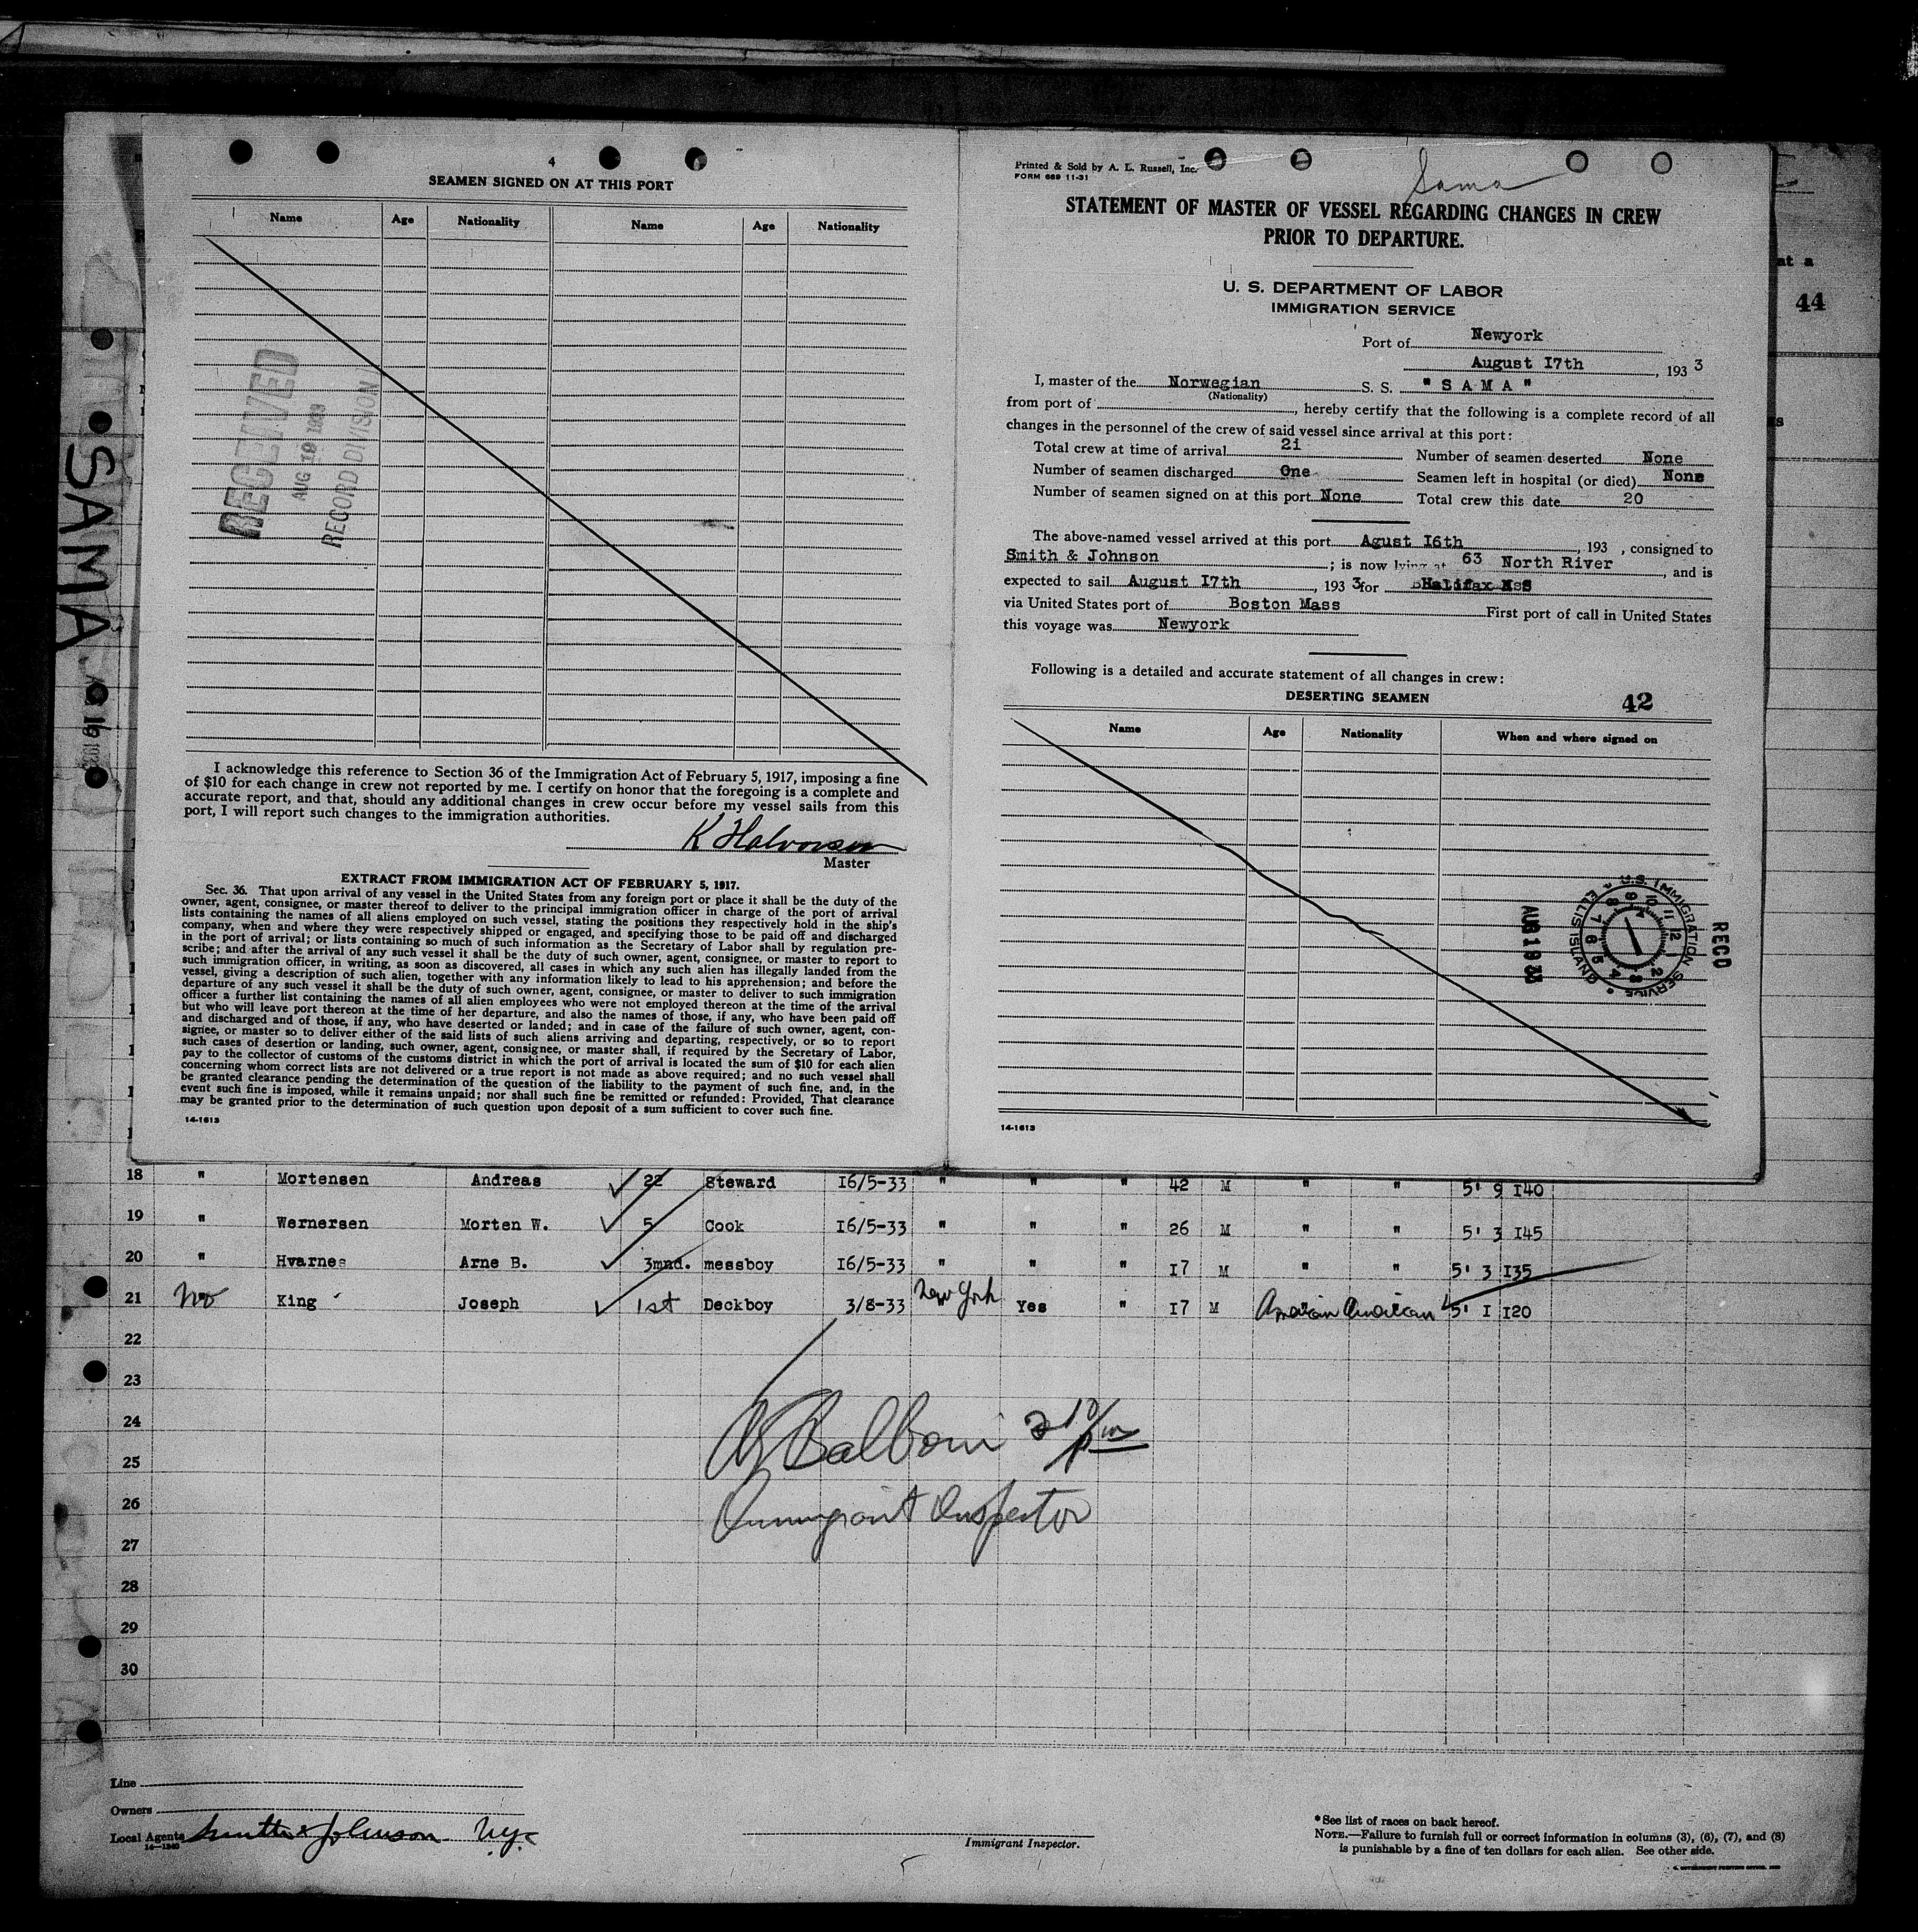 4
SEAMEN SIGNED ON AT THIS PORT
Name Age Nationality Name Age Nationality
RECEIVED
AUG 19 1933
RECORD DIVISION
I acknowledge this reference to Section 36 of the Immigration Act of February 5, 1917, imposing a fine
of $10 for each change in crew not reported by me. I certify on honor that the foregoing is a complete and
accurate report, and that, should any additional changes in crew occur before my vessel sails from this
port, I will report such changes to the immigration authorities.
K Halvorsen
Master
EXTRACT FROM IMMIGRATION ACT OF FEBRUARY 5, 1917.
Sec. 36. That upon arrival of any vessel in the United States from any foreign port or place it shall be the duty of the
owner, agent, consignee, or master thereof to deliver to the principal immigration officer in charge of the port of arrival
lists containing the names of all aliens employed on such vessel, stating the positions they respectively hold in the ship's
company, when and where they were respectively shipped or engaged, and specifying those to be paid off and discharged
in the port of arrival; or lists containing so much of such information as the Secretary of Labor shall by regulation pre-
scribe; and after the arrival of any such vessel it shall be the duty of such owner, agent, consignee, or master to report to
such immigration officer, in writing, as soon as discovered, all cases in which any such alien has illegally landed from the
vessel, giving a description of such alien, together with any information likely to lead to his apprehension; and before the
departure of any such vessel it shall be the duty of such owner, agent, consignee, or master to deliver to such immigration
officer a further list containing the names of all alien employees who were not employed thereon at the time of the arrival
but who will leave port thereon at the time of her departure, and also the names of those, if any, who have been paid off
and discharged and of those, if any, who have deserted or landed; and in case of the failure of such owner, agent, con-
signee, or master so to deliver either of the said lists of such aliens arriving and departing, respectively, or so to report
such cases of desertion or landing, such owner, agent, consignee, or master shall, if required by the Secretary of Labor,
pay to the collector of customs of the customs district in which the port of arrival is located the sum of $10 for each alien
concerning whom correct lists are not delivered or a true report is not made as above required; and no such vessel shall
be granted clearance pending the determination of the question of the liability to the payment of such fine, and, in the
event such fine is imposed, while it remains unpaid; nor shall such fine be remitted or refunded: Provided, That clearance
may be granted prior to the determination of such question upon deposit of a sum sufficient to cover such fine.
14-1613
Printed & Sold by A. L. Russell, Inc.
FORM 689 11-31
Sama
STATEMENT OF MASTER OF VESSEL REGARDING CHANGES IN CREW
PRIOR TO DEPARTURE.
U. S. DEPARTMENT OF LABOR
IMMIGRATION SERVICE
Port of Newyork
August I7th, 193 3
I, master of the Norwegian S. S. "SAMA"
(Nationality)
from port of , hereby certify that the following is a complete record of all
changes in the personnel of the crew of said vessel since arrival at this port:
Total crew at time of arrival 2i Number of seamen deserted None
Number of seamen discharged One Seamen left in hospital (or died) None
Number of seamen signed on at this port None Total crew this date 20
The above-named vessel arrived at this port Agust I6th, 193 , consigned to
Smith & Johnson ; is now lying at 63 North River, and is
expected to sail August I7th, 193 3 for Halifax NsS
via United States port of Boston Mass First port of call in United States
this voyage was Newyork
Following is a detailed and accurate statement of all changes in crew:
DESERTING SEAMEN 42
Name Age Nationality When and where signed on
AUG 19 33
U.S. IMMIGRATION SERVICE ELLIS ISLAND
RECD
14-1613
at a
44
SAMA
18 " Mortensen Andreas 22 Steward I6/5-33 " " " 42 M " " 5' 9 I40
19 " Wernersen Morten W. 5 Cook I6/5-33 " " " 26 M " " 5' 3 I45
20 " Hvarnes Arne B. 3mnd. messboy I6/5-33 " " " I7 M " " 5' 3 I35
21 No King Joseph 1st Deckboy 3/8-33 New York Yes " I7 M American American 5' I I20
22
23
24
25
26
27
28
29
30
Balboni 2 10/pm
Immigrant Inspector
Line
Owners
Local Agents Smith & Johnson N.Y.
14-1240
Immigrant Inspector.
*See list of races on back hereof.
NOTE.—Failure to furnish full or correct information in columns (3), (6), (7), and (8)
is punishable by a fine of ten dollars for each alien. See other side.